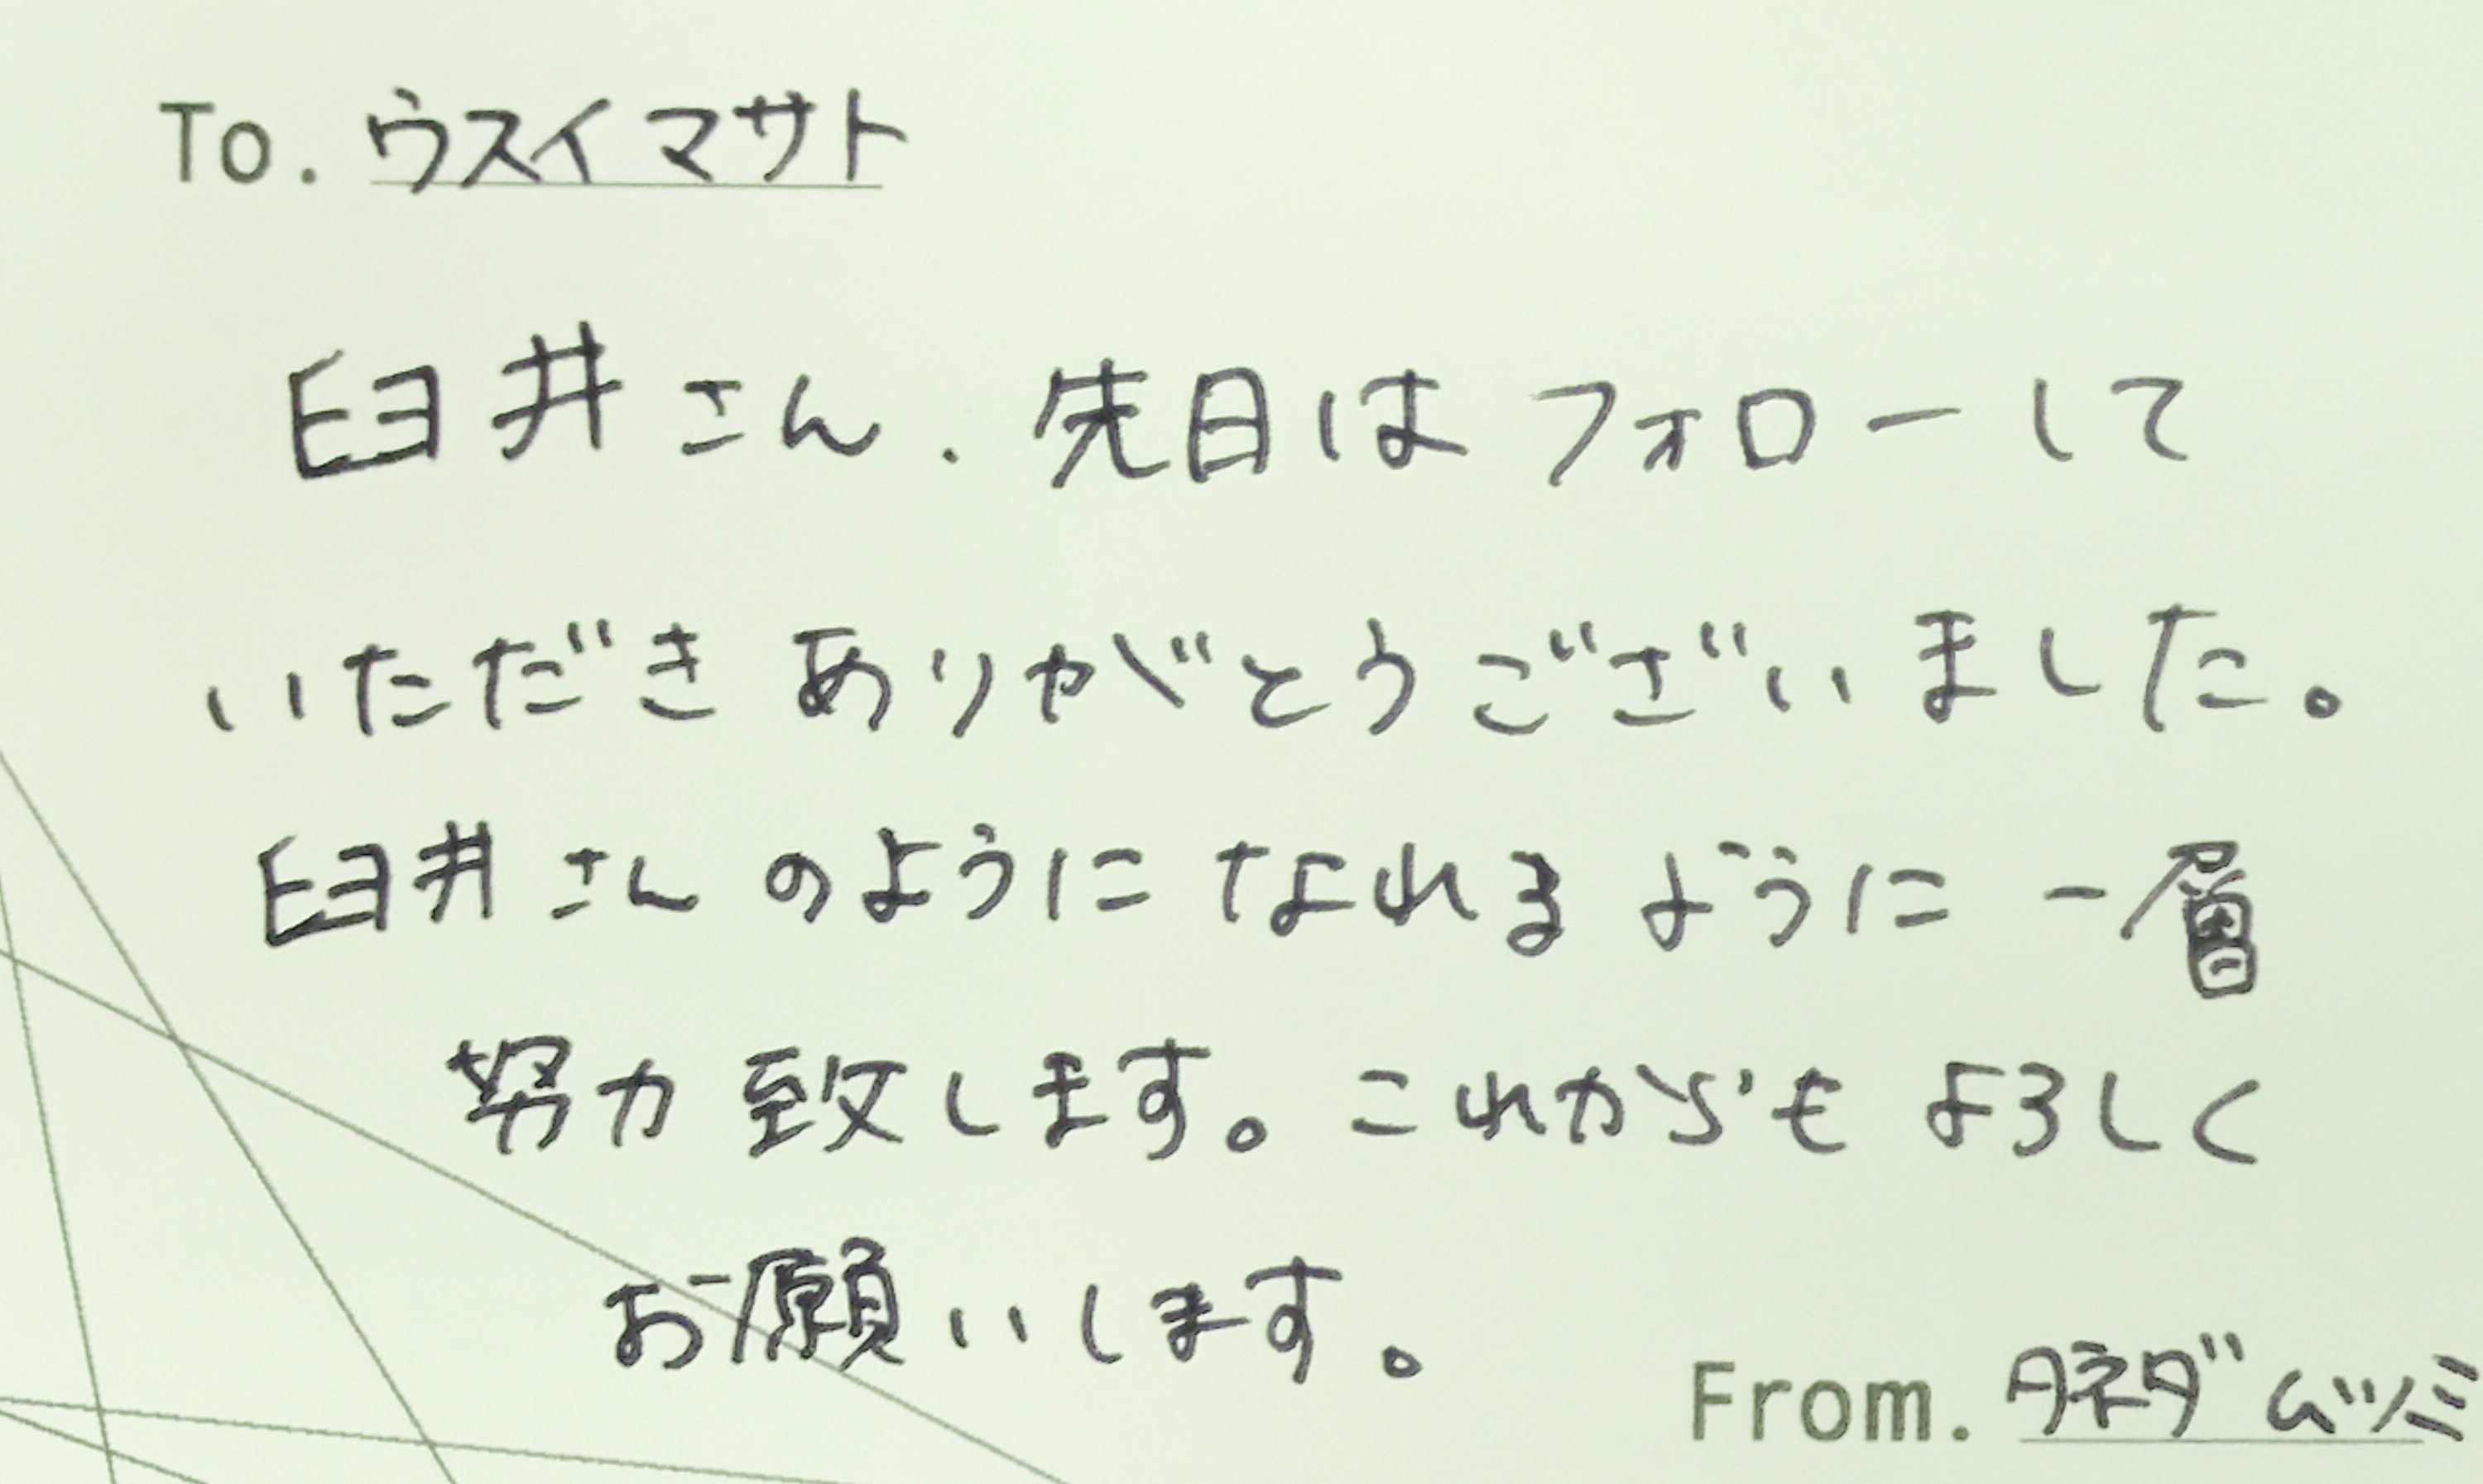 To. ウスイマサト
臼井さん. 先日はフォローして
いただきありがとうございました。
臼井さんのようになれるように一層
努力致します。これからもよろしく
お願いします。
From. タネダムツミ